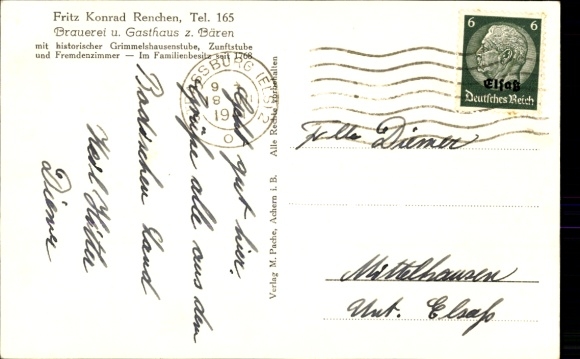 Fritz Konrad Renchen, Tel. 165
Brauerei u. Gasthaus z. Bären
mit historischer Grimmelshausenstube, Zunftstube
und Fremdenzimmer — Im Familienbesitz seit 1768
gut hier.
Grüße alle aus dem
Badischen Land
Diemer
Verlag M. Pache, Achern i. B. Alle Rechte vorbehalten
STRASSBURG (ELS)
6 6
Elsaß
Deutsches Reich
Diemer
Mittelhausen
Unt. Elsaß